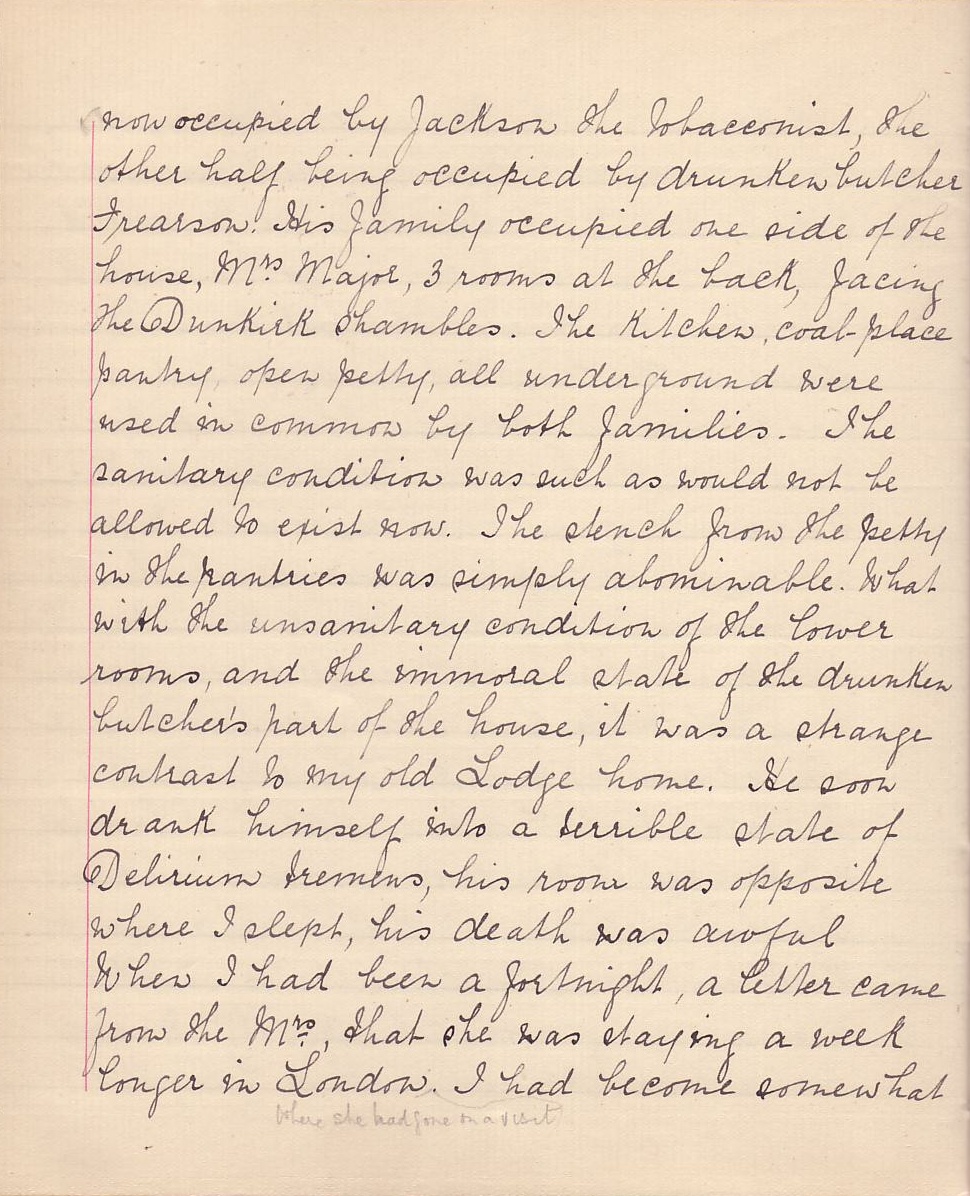 now occupied by Jackson the Tobacconist, the
other half being occupied by drunken butcher
Frearson. His family occupied one side of the
house, Mrs Major, 3 rooms at the back, facing
the Dunkirk shambles. The kitchen, coal-place
pantry, open petty, all underground were
used in common by both families. The
sanitary condition was such as would not be
allowed to exist now. The stench from the petty
in the pantries was simply abominable. What
with the unsanitary condition of the lower
rooms, and the immoral state of the drunken
butcher's part of the house, it was a strange
contrast to my old Lodge home. He soon
drank himself into a terrible state of
Delirium tremens, his room was opposite
where I slept, his death was awful
When I had been a fortnight, a letter came
from the Mrs, that she was staying a week
longer in London. I had become somewhat
where she had gone on a visit